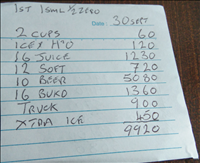 1ST ISML 1/2 ZERO
Date 30 SEPT
2 CUPS 60
ICEX H2O 120
16 JUICE 1230
12 SOFT 720
10 BEER 5080
16 BUKO 1360
TRUCK 900
XTRA ICE 450
9920